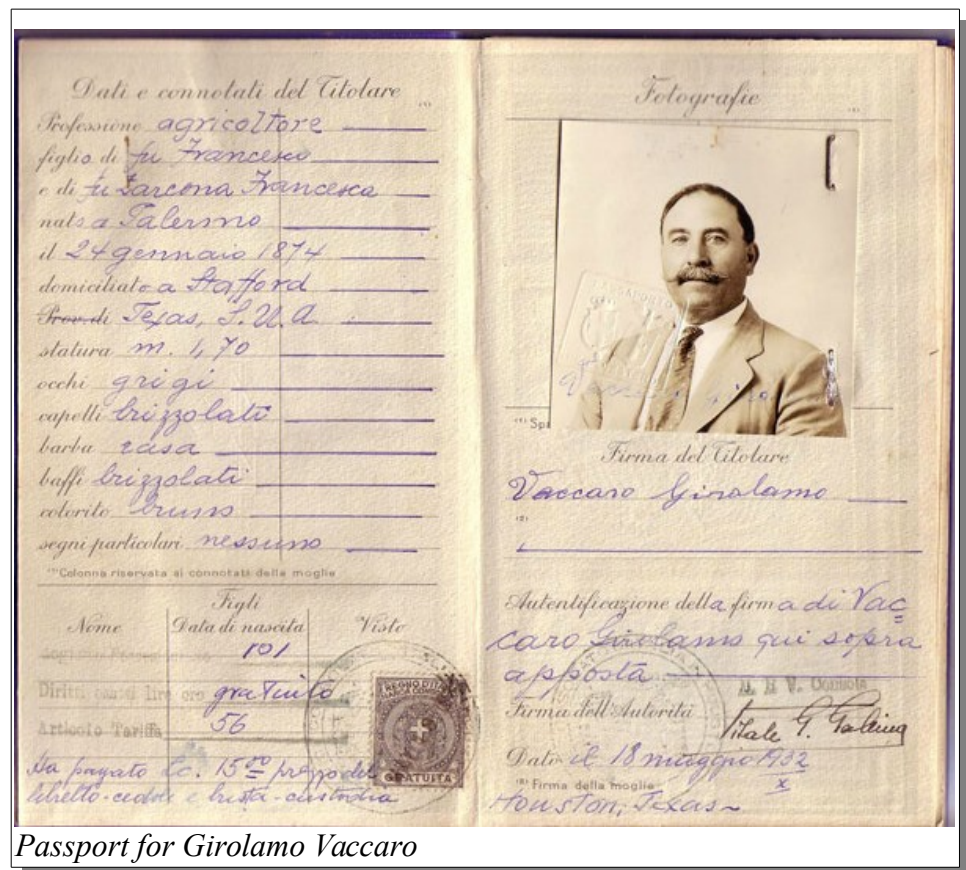 Dati e connotati del Titolare
Professione agricoltore
figlio di fu Francesco
e di fu Zarcona Francesca
nato a Palermo
il 24 gennaio 1874
domiciliato a Stafford
Prov. di Texas, S.U.A.
statura m. 1,70
occhi grigi
capelli brizzolati
barba rasa
baffi brizzolati
colorito bruno
segni particolari nessuno
Colonna riservata ai connotati della moglie
Figli
Nome Data di nascita Visto
101
Diritti lire oro gratuito
Articolo Tariffa 56
GRATUITA
Ha pagato Lc. 15.00 prezzo del
libretto-cedole e busta-custodia
Fotografie
Firma del Titolare
Vaccaro Girolamo
Autentificazione della firma di Vac=
caro Girolamo qui sopra
apposta
Console
Firma dell'Autorità
Dato il 18 maggio 1932
x
Firma della moglie
Houston, Texas
Passport for Girolamo Vaccaro